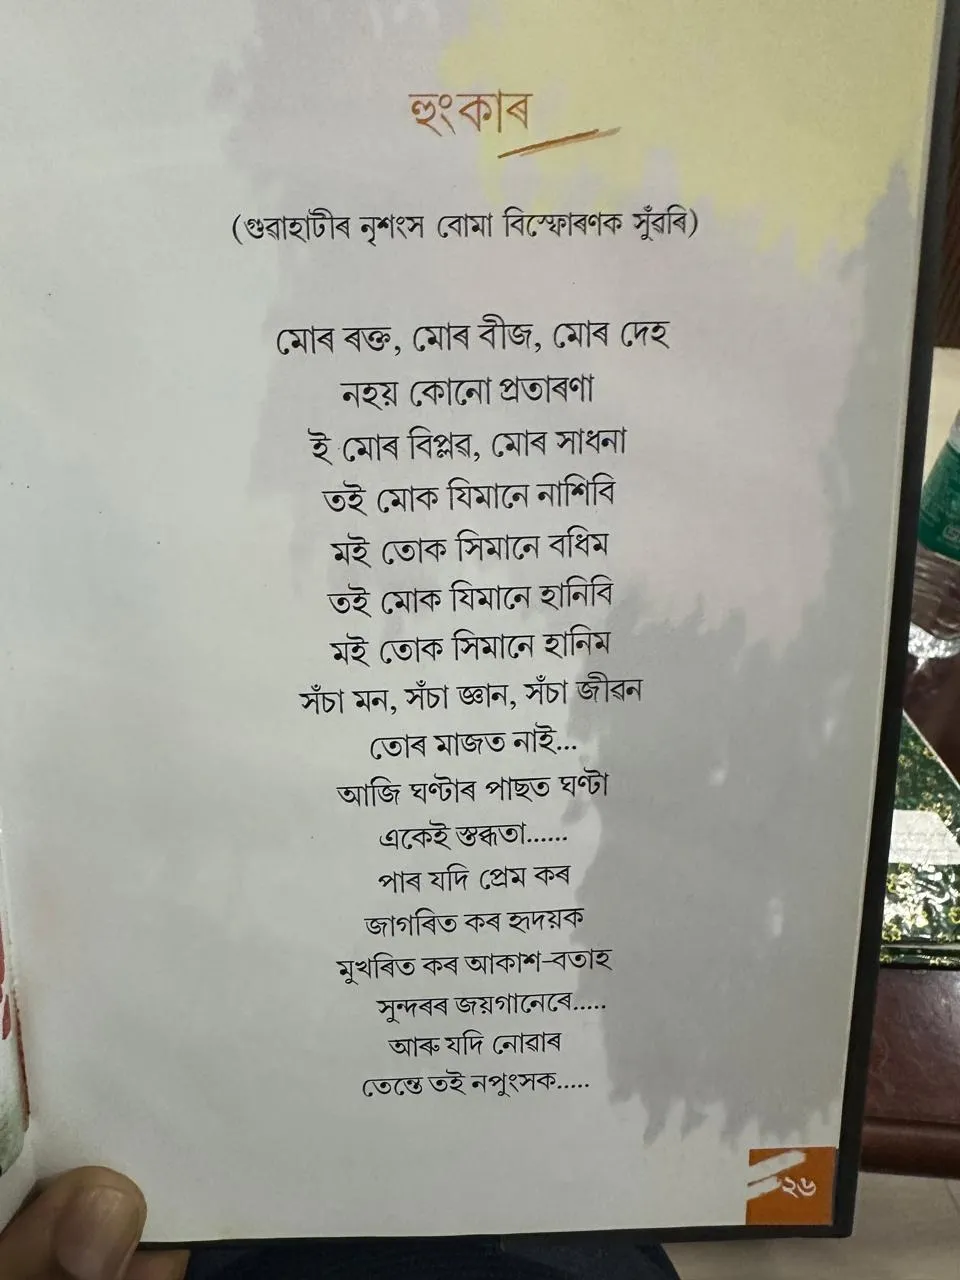 হুংকাৰ
(গুৱাহাটীৰ নৃশংস বোমা বিস্ফোৰণক সুঁৱৰি)
মোৰ ৰক্ত, মোৰ বীজ, মোৰ দেহ
নহয় কোনো প্ৰতাৰণা
ই মোৰ বিপ্লৱ, মোৰ সাধনা
তই মোক যিমানে নাশিবি
মই তোক সিমানে বধিম
তই মোক যিমানে হানিবি
মই তোক সিমানে হানিম
সঁচা মন, সঁচা জ্ঞান, সঁচা জীৱন
তোৰ মাজত নাই...
আজি ঘণ্টাৰ পাছত ঘণ্টা
একেই স্তব্ধতা......
পাৰ যদি প্ৰেম কৰ
জাগৰিত কৰ হৃদয়ক
মুখৰিত কৰ আকাশ-বতাহ
সুন্দৰৰ জয়গানেৰে.....
আৰু যদি নোৱাৰ
তেন্তে তই নপুংসক.....
২৬